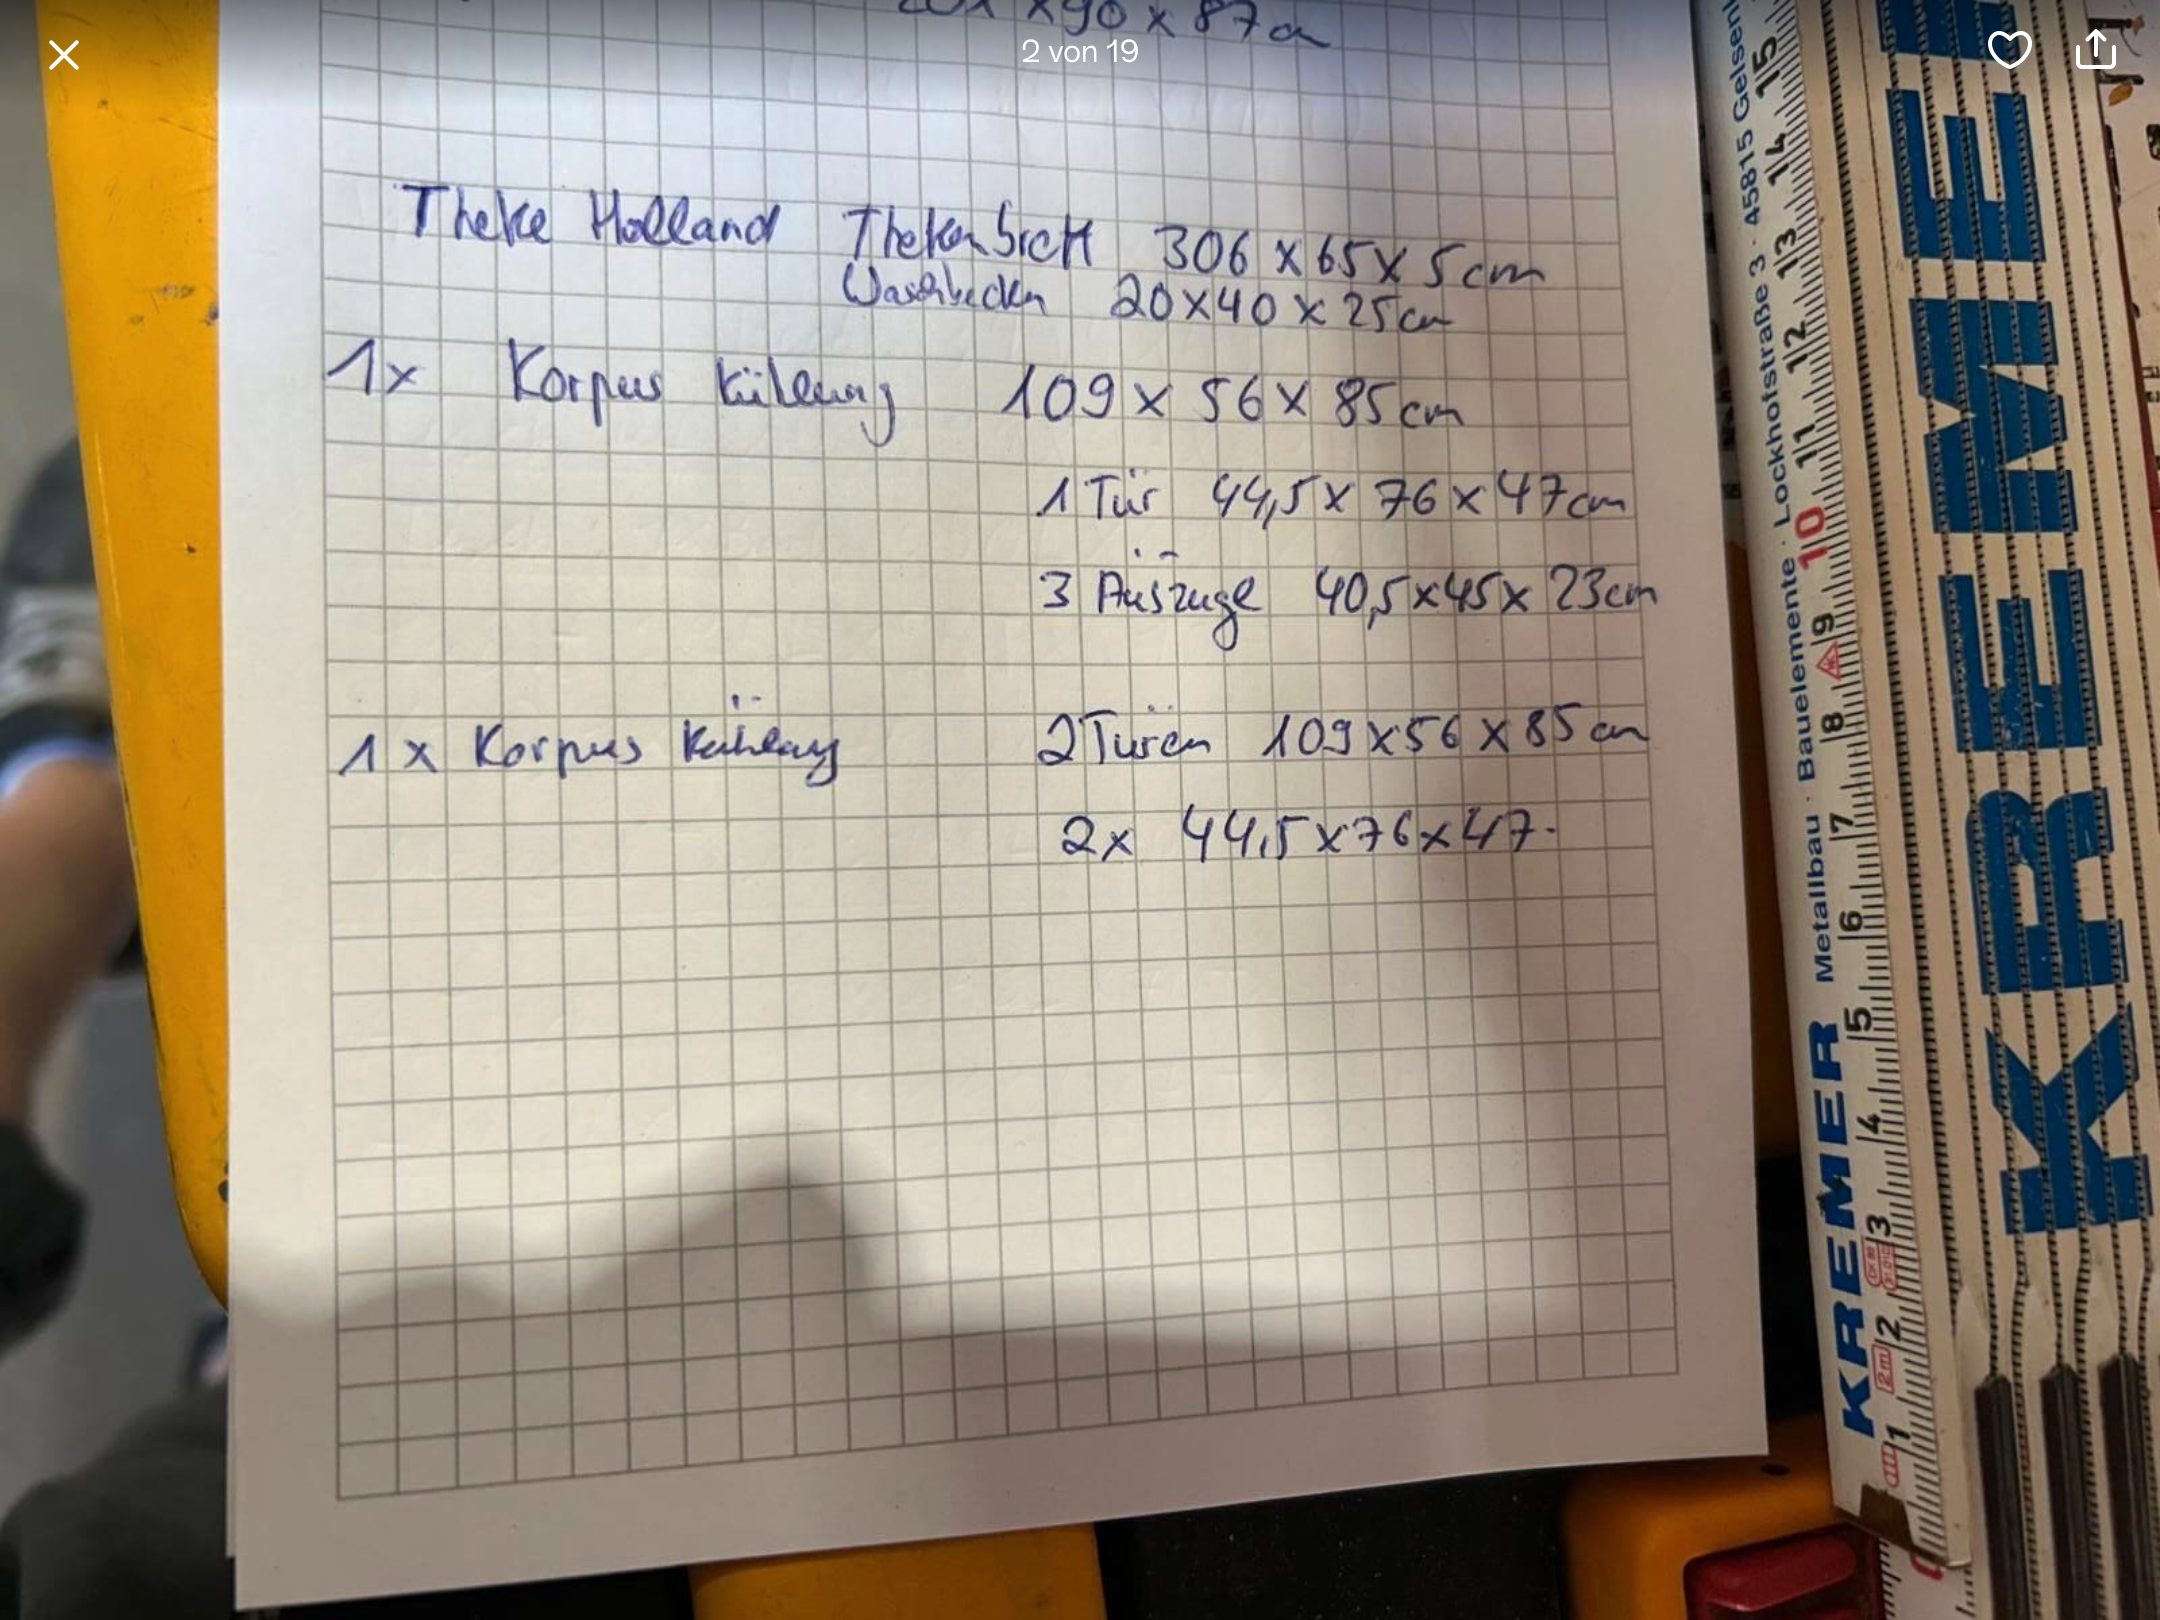 x90 x 87cm
2 von 19
Theke Holland Thekenbrett 306 x 65 x 5 cm
Waschbecken 20x40 x 25cm
1x Korpus Kühlung 109 x 56 x 85cm
1 Tür 44,5 x 76 x 47cm
3 Auszüge 40,5x45x 23cm
1x Korpus Kühlung 2 Türen 109x56 x 85cm
2x 44,5x76x47
KREMER Metallbau · Bauelemente · Lockhofstraße 3 · 45815 Gelsenk
1 2 3 4 5 6 7 8 9 10 11 12 13 14 15
2m
KREME